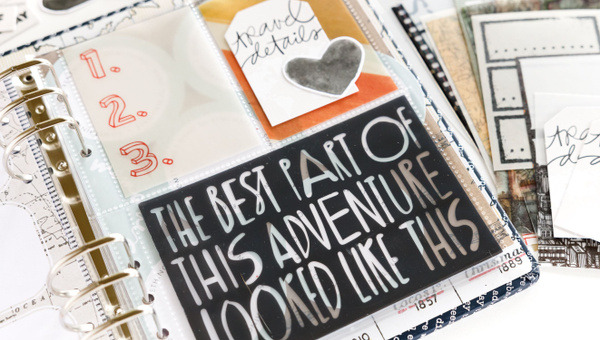 travel
details
1.
2.
3.
THE BEST PART OF
THIS ADVENTURE
LOOKED LIKE THIS
1857
1889
10